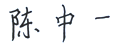 陈中一